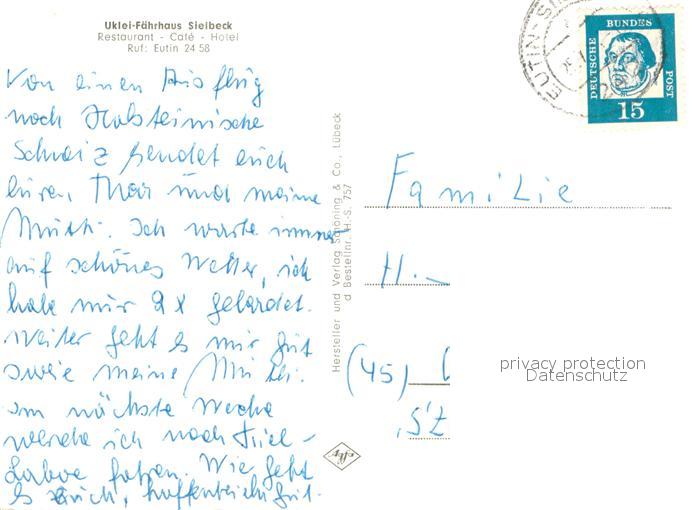 Uklei-Fährhaus Sielbeck
Restaurant - Café - Hotel
Ruf: Eutin 24 58
Von einen Ausflug
nach Holsteinische
Schweiz sendet euch
und meine
Mutti. Ich warte immer
auf schönes Wetter, ich
habe nur 2x gebadet.
Weiter geht es mir gut
sowie meine Mutti.
nächste Woche
werde ich nach Kiel-
Laboe fahren. Wie geht
es euch, hoffentlich gut.
Hersteller und Verlag Schöning & Co., Lübeck
Bestellnr. H.-S. 757
EUTIN-SI
DEUTSCHE
BUNDES
POST
15
Familie
H.
(45)
privacy protection
Datenschutz